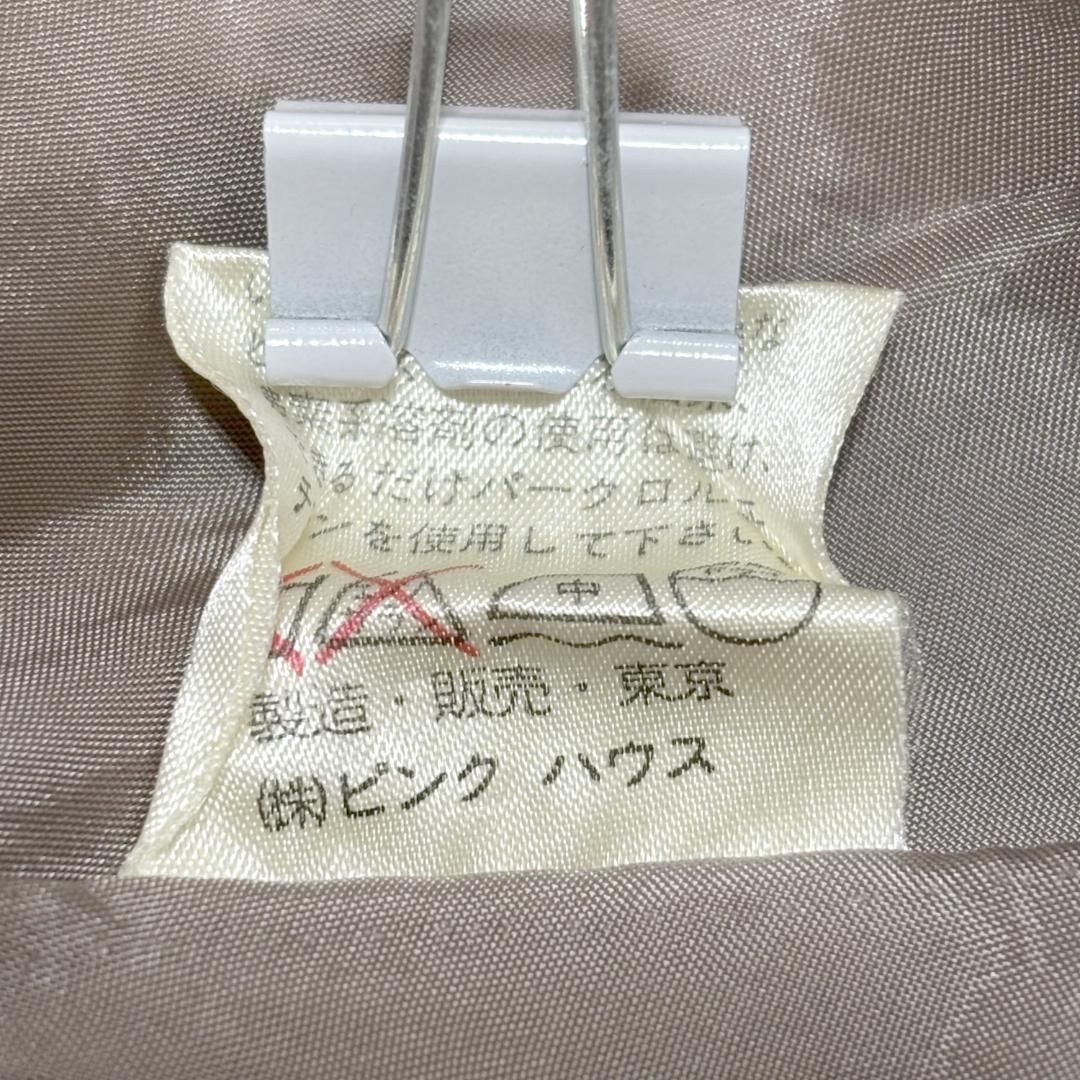 溶剤の使用は避け、
るだけパークロルエ
ンを使用して下さい
中
製造・販売・東京
㈱ピンク ハウス